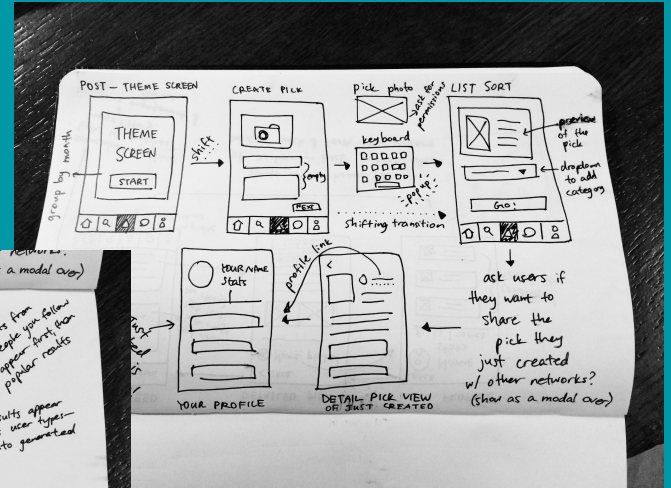 POST - THEME SCREEN
group by month
THEME
SCREEN
START
shift
CREATE PICK
empty
NEXT
pick photo
ask for
permissions
keyboard
popup
shifting transition
LIST SORT
preview
of the
pick
dropdown
to add
category
GO!
ask users if
they want to
share the
pick they
just created
w/ other networks?
(show as a modal over)
profile link
YOUR NAME
Stats
YOUR PROFILE
DETAIL PICK VIEW
OF JUST CREATED
networks?
a modal over)
from
people you follow
appear first, then
popular results
results appear
user types—
generated
is